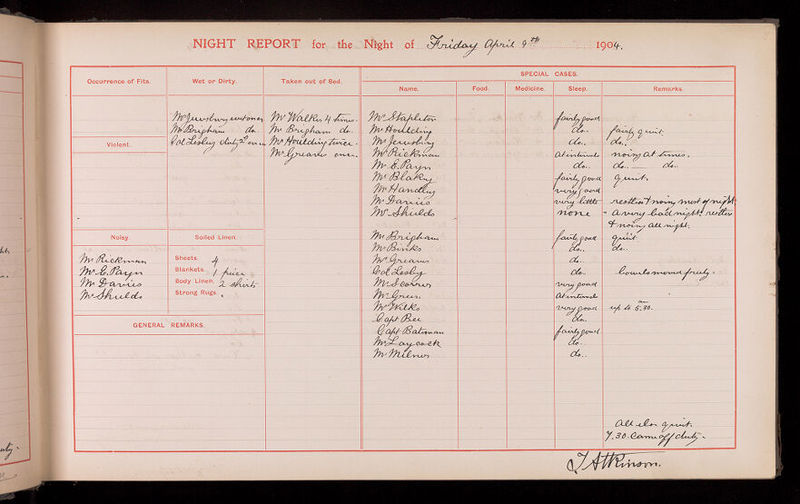 NIGHT REPORT for the Night of Friday April 9th 1904.
Occurrence of Fits.
Wet or Dirty.
Taken out of Bed.
SPECIAL CASES.
Name.
Food.
Medicine.
Sleep.
Remarks.
Mr Brigham do.
Mr Walker 4 times.
Mr Brigham do.
Mr Houlding twice.
Mr Greaves once.
Violent.
Col Lesley dirty
Mr Stapleton fairly good
Mr Houlding do. fairly quiet.
do. do.
Mr Rickman at intervals noisy at times.
Mr E. Payn do. do. do.
Mr Blakey fairly good quiet.
Mr Handley very good
Mr Davies very little restless & noisy most of night
Mr Shields none a very bad night, restless
& noisy all night.
Mr Brigham fairly good quiet
Mr Binks do. do.
Mr Greaves do.
Col Lesley do. bowels moved freely.
very good
Mr Green at intervals
Mr Wilks very good up to 5.30.
Capt Bell do.
Capt Bateman fairly good
Mr Laycock do.
Mr Milner do.
Noisy.
Mr Rickman
Mr E. Payn
Mr Davies
Mr Shields
Soiled Linen.
Sheets. 4
Blankets. 1 piece
Body Linen. 2 shirts
Strong Rugs.
GENERAL REMARKS.
All else quiet.
7.30. Came off duty.
J Atkinson.